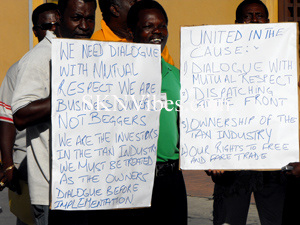 WE NEED DIALOGUE
WITH MUTUAL
RESPECT WE ARE
BUSINESS
NOT BEGGERS
WE ARE THE INVESTORS
IN THE TAXI INDUSTRY
WE MUST BE TREATED
AS THE OWNERS
DIALOGUE BEFORE
IMPLEMENTATION
UNITED IN THE
CAUSE:-
1) DIALOGUE WITH
MUTUAL RESPECT
2) DISPATCHING
AT THE FRONT
3) OWNERSHIP OF THE
TAXI INDUSTRY
4) OUR RIGHTS TO FREE
AND FAIR TRADE
Vibes